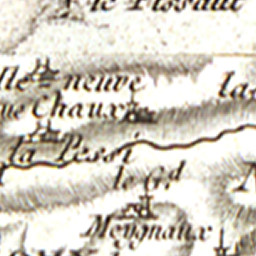 le Pissaut
lle neuve
ue Chaux
la Pessi
le G.d
Meygnaux